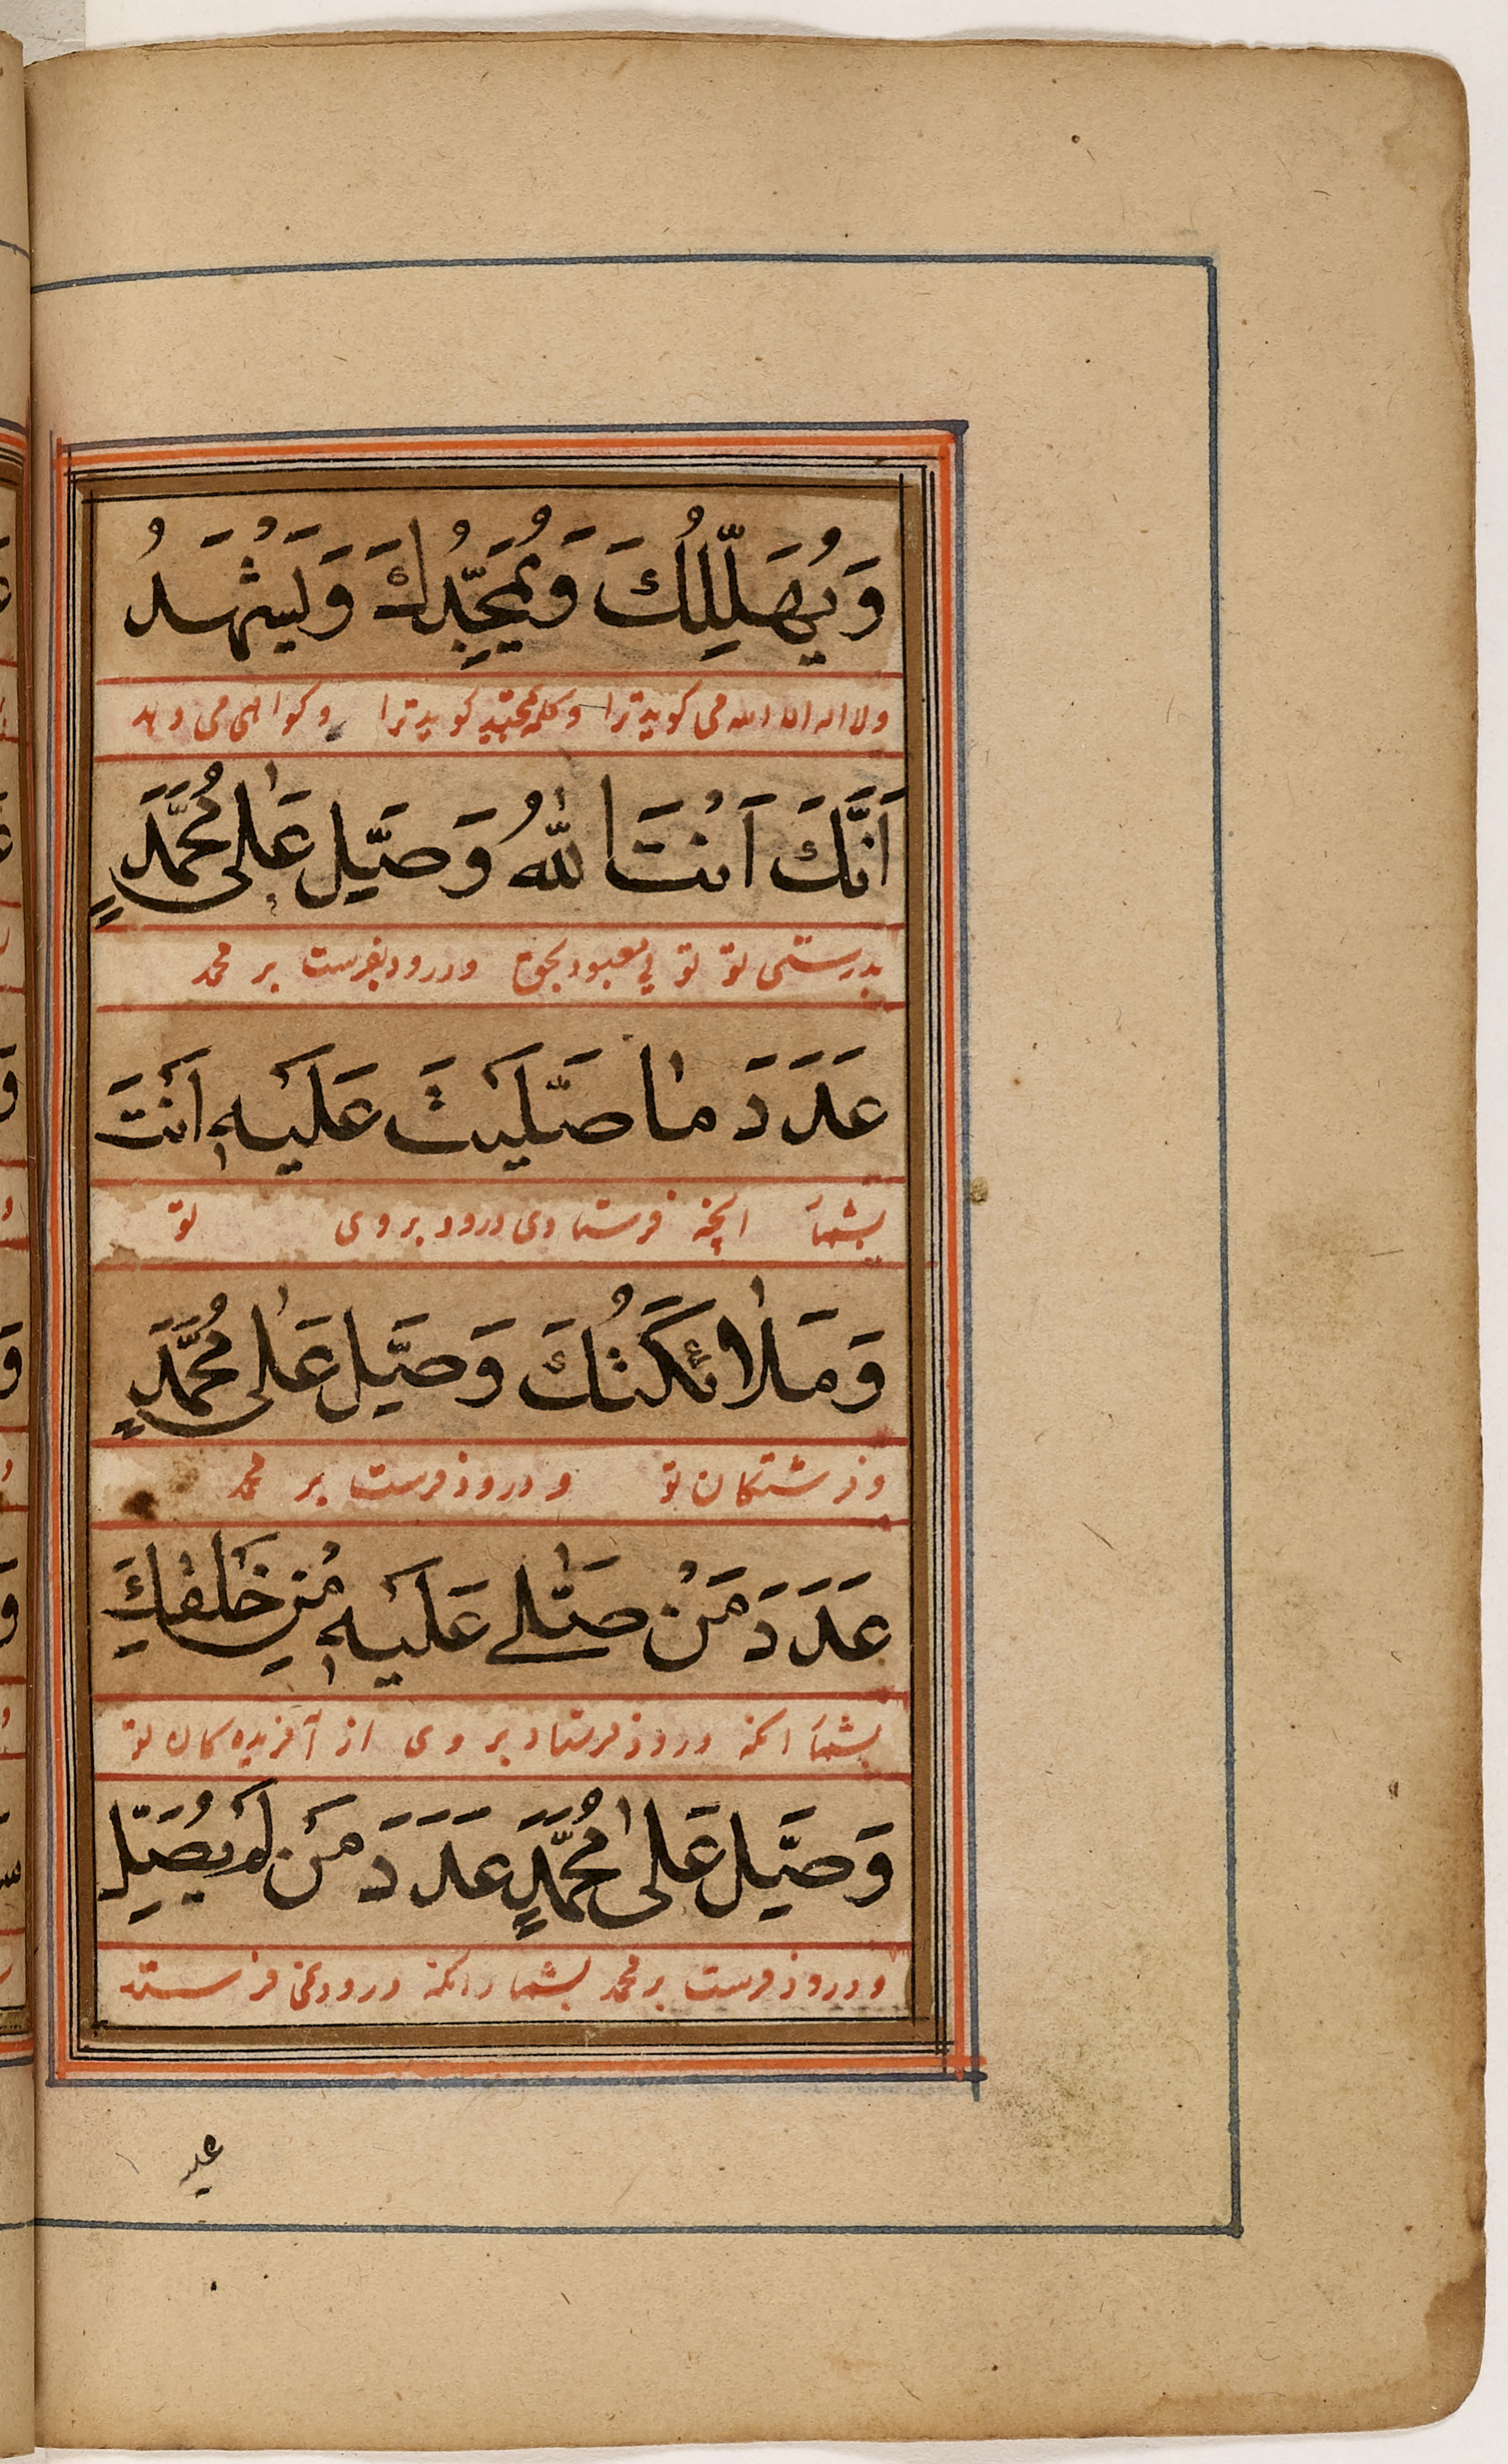 وَيُهَلِّلُكَ وَيُمَجِّدُكَ وَيَشْهَدُ
ولا اله الا الله می کوید ترا و کلمه تمجید کوید ترا و کواهی می دهد
اَنَّكَ اَنْتَ اللّٰهُ وَصَلِّ عَلٰى مُحَمَّدٍ
بدرستی تو تو یی معبود بحق ودرود بفرست بر محمد
عَدَدَ مٰا صَلَّيْتَ عَلَيْهِ اَنْتَ
بشمار انچه فرستادی درود بروی تو
وَمَلٰائِكَتُكَ وَصَلِّ عَلٰى مُحَمَّدٍ
وفرشتکان تو ودرود فرست بر محمد
عَدَدَ مَنْ صَلّٰى عَلَيْهِ مِنْ خَلْقِكَ
بشمار انکه درود فرستاد بروی از آفریده کان تو
وَصَلِّ عَلٰى مُحَمَّدٍ عَدَدَ مَنْ لَمْ يُصَلِّ
ودرود فرست بر محمد بشمار انکه درود نمی فرستد